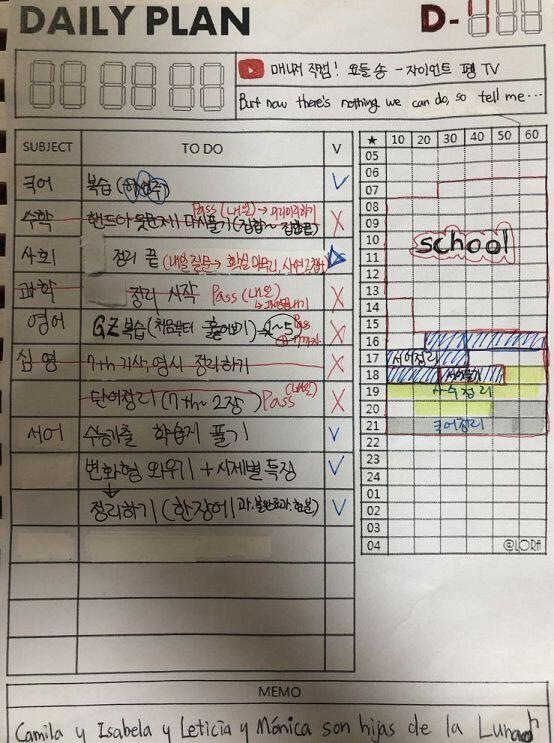 DAILY PLAN
D-
매니저 직캠! 요들 송 - 자이언트 펭 TV
But now there's nothing we can do, so tell me...
SUBJECT TO DO V
국어 복습 V
Pass (내일)
수학 핸드아웃 문제 다시풀기 X
사회 정리 끝
과학 정리 시작 Pass (내일) X
영어 GZ 복습 (처음부터 훑어보기) 1~5 Pass X
심영 7th 기상, 명시 정리하기 X
단어정리 (7th~ 2장) Pass (내일) X
서어 수능기출 학습지 풀기 V
변화형 외우기 + 시제별 특징 V
정리하기 (한장에 V
★ 10 20 30 40 50 60
05
06
07
08
09
10 school
11
12
13
14
15
16
17 서어정리
18
19
20
21 국어정리
22
23
24
01
02
03
04
MEMO
Camila y Isabela y Leticia y Mónica son hijas de la Luna